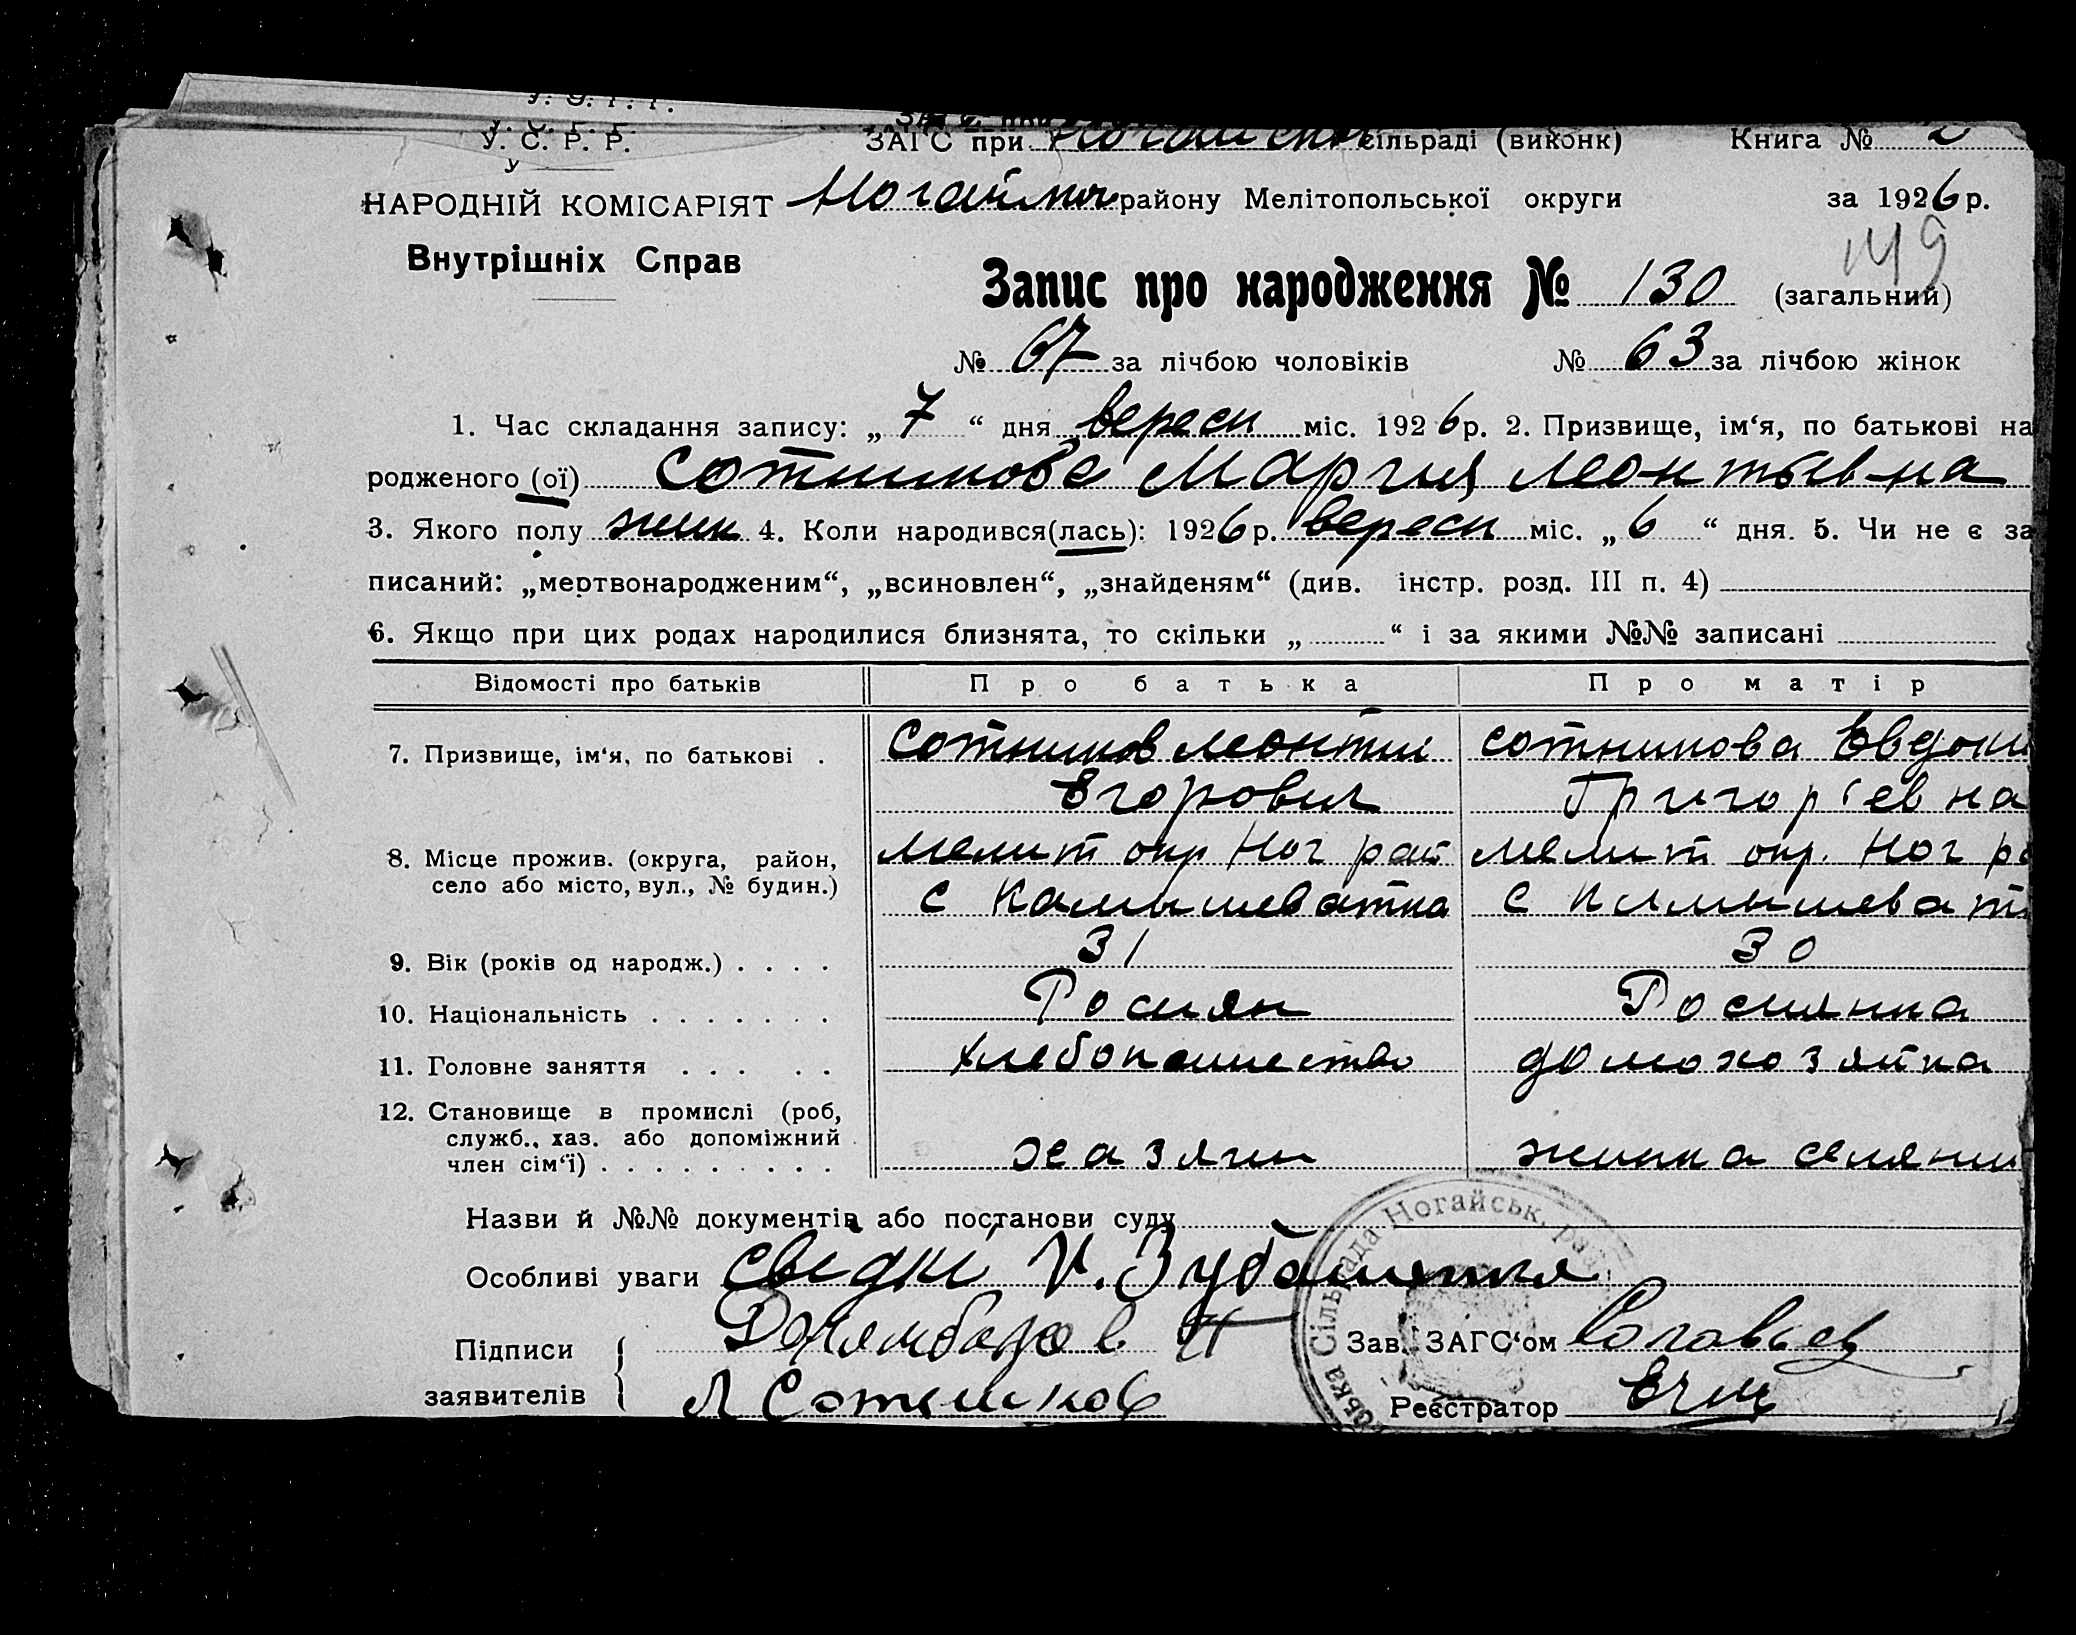 У. С. Р. Р.
ЗАГС при сільраді (виконк) Книга № 2
НАРОДНІЙ КОМІСАРІЯТ району Мелітопольської округи за 1926 р.
Внутрішніх Справ
149
Запис про народження № 130 (загальний)
№ 67 за лічбою чоловіків № 63 за лічбою жінок
1. Час складання запису: „ 7 “ дня вересн міс. 1926 р. 2. Призвище, ім‘я, по батькові на
родженого (ої) Сотникова Мария Леонтьевна
3. Якого полу жин 4. Коли народився(лась): 1926 р. вересн міс. „ 6 “ дня. 5. Чи не є за
писаний: „мертвонародженим“, „всиновлен“, „знайденям“ (див. інстр. розд. III п. 4)
6. Якщо при цих родах народилися близнята, то скільки „ “ і за якими №№ записані
Відомості про батьків Про батька Про матір
7. Призвище, ім‘я, по батькові . Сотников Леонтий Сотникова Евдоки
Егорович Григорієвна
8. Місце прожив. (округа, район, Мелит окр Ног рай Мелит окр. Ног ра
село або місто, вул., № будин.) с Камышеватка с Камышеватк
9. Вік (років од народж.) . . . . 31 30
10. Національність . . . . . . . Росиян Росиянка
11. Головне заняття . . . . . хлебопашество домохозяйка
12. Становище в промислі (роб,
служб., хаз. або допоміжний
член сім‘ї) . . . . . . . . . хазяин жинка селянин
Назви й №№ документів або постанови суду
Особливі уваги свідки И.
Сільрада Ногайськ. рай
Підписи Зав. ЗАГС‘ом
заявителів Л Сотников Реєстратор